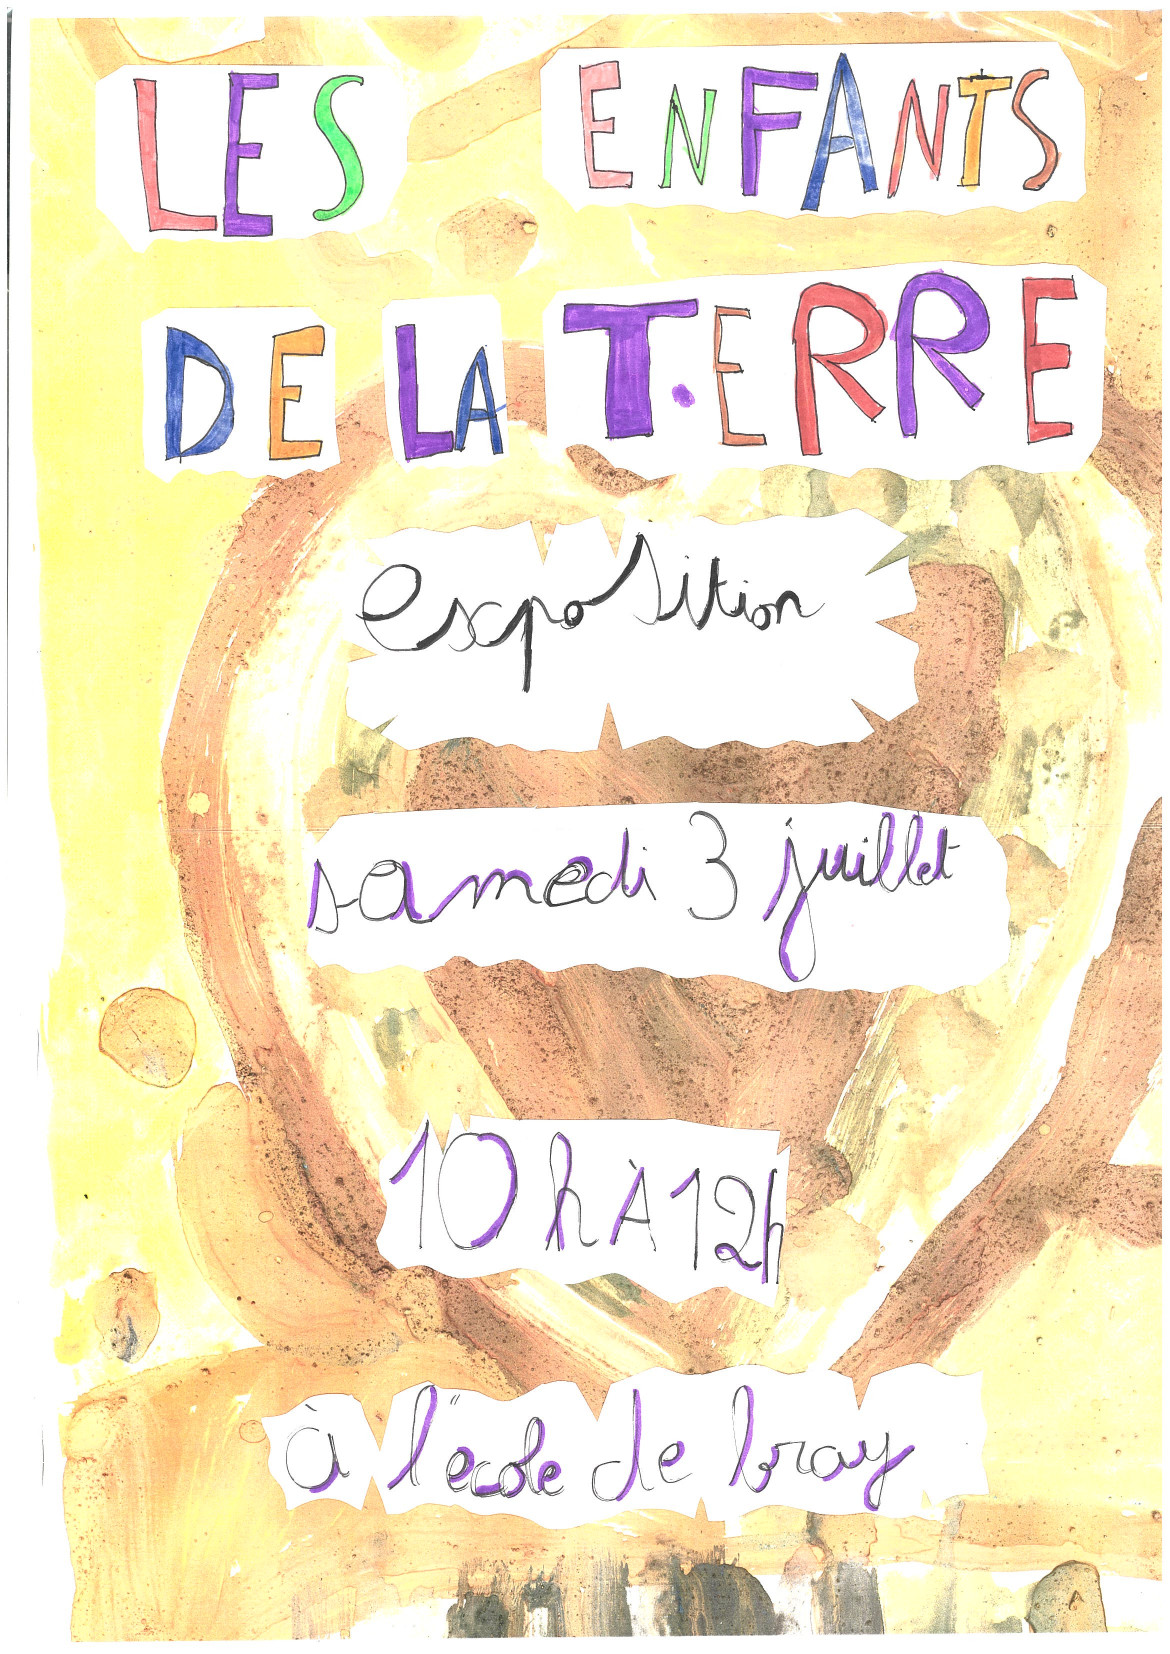 LES ENFANTS
DE LA TERRE
exposition
samedi 3 juillet
10 h À 12h
à l'école de bray